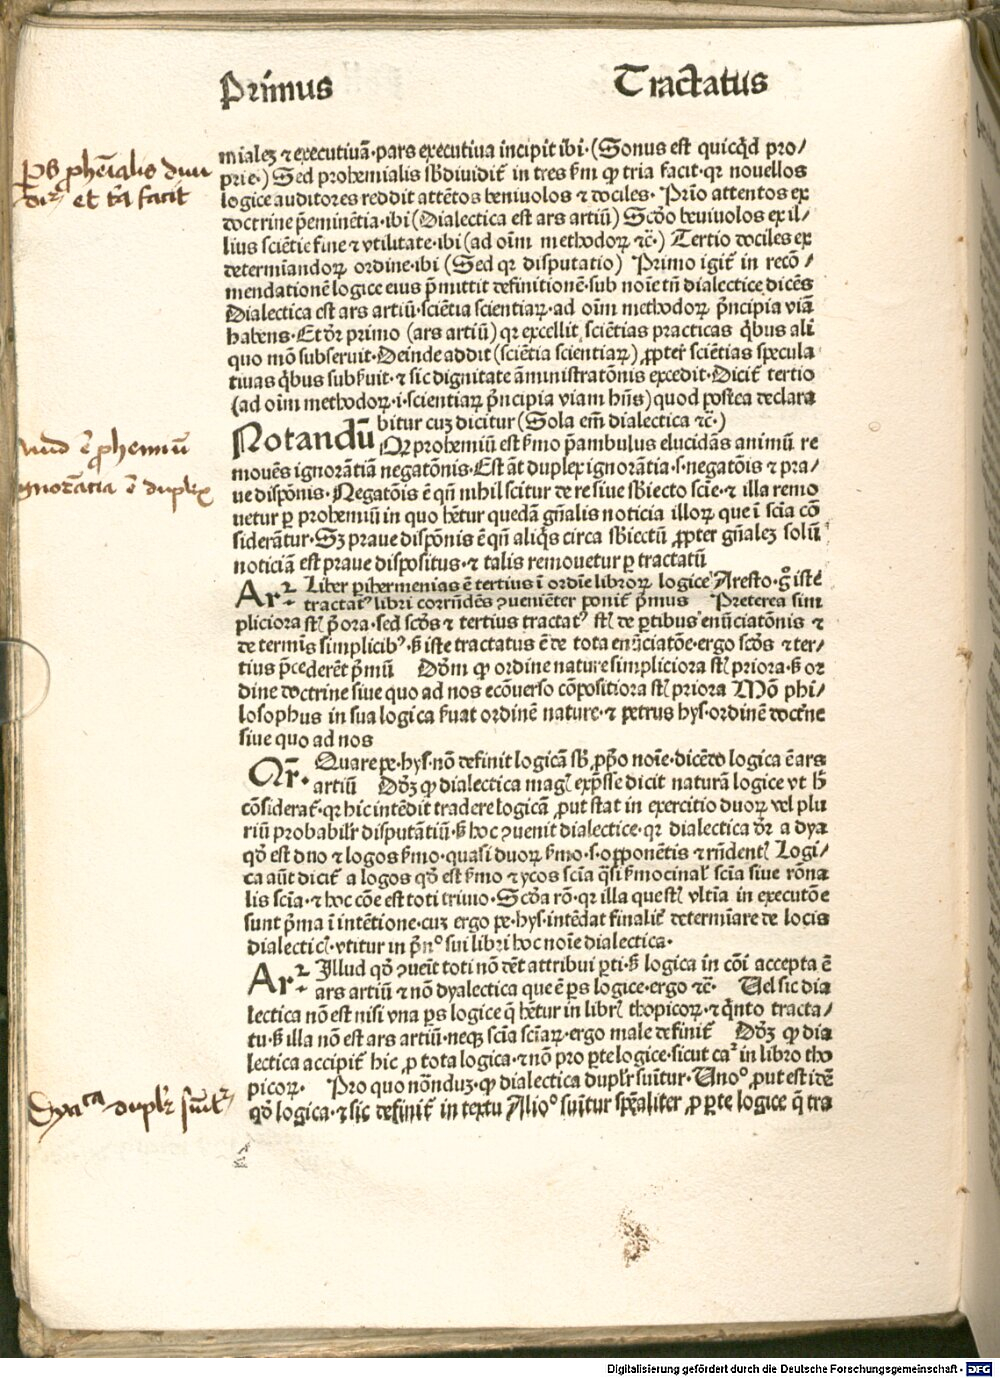 Primus Tractatus
mialeꝫ ⁊ executiuā·pars executiua incipit ibi·(Sonus est quicq̄d pro/
prie·) Sed prohemialis sb̄diuidit᷑ in tres ẜm ꝙ tria facit·qꝛ nouellos
logice auditores reddit attētos beniuolos ⁊ dociles· Prīo attentos ex
doctrine p̄eminētia·ibi (Dialectica est ars artiū) Scd̄o beniuolos ex il/
lius sciētie fine ⁊ vtilitate·ibi (ad oīm methodoꝝ ⁊c̄·) Tertio dociles ex
determīandoꝝ ordine·ibi (Sed qꝛ disputatio) Primo igit᷑ in recō/
mendationē logice eius p̄mittit definitionē·sub noīe tn̄ dialectice dicēs
Dialectica est ars artiū·sciētia scientiaꝝ·ad oīm methodoꝝ p̄ncipia viā
habens·Et dr̄ primo (ars artiū) qꝛ excellit sciētias practicas q̇bus ali
quo mō subseruit·Deinde addit (sciētia scientiaꝝ) ꝓpter sciētias specula
tiuas q̇bus subẜuit·⁊ sic dignitate āministratōnis excedit·Dicit᷑ tertio
(ad oīm methodoꝝ·i·scientiaꝝ p̄ncipia viam hn̄s) quod postea declara
bitur cuꝫ dicitur (Sola em̄ dialectica ⁊c̄·)
Notandū Qꝛ prohemiū est ẜmo p̄ambulus elucidās animū re
mouēs ignorātiā negatōnis·Est āt duplex ignorātia·s·negatōis ⁊ pra/
ue dispōnis·Negatōis ē qn̄ nihil scitur de re siue sb̄iecto scīe·⁊ illa remo
uetur ꝑ prohemiū in quo hētur quedā gn̄alis noticia illoꝝ que ī scīa cō
siderātur·Sꝫ praue dispōnis ē qn̄ aliq̇s circa sb̄iectū ꝓpter gn̄aleꝫ solū
noticiā est praue dispositus·⁊ talis remouetur ꝑ tractatū
Arꝛ· Liber ꝑihermenias ē tertius ī ordīe libroꝝ logice Aresto·gͦ iste
tractatꝰ libri corrn̄dēs ꝯueniēter ponit᷑ p̄mus Preterea sim
pliciora st̄ p̄ora·sed scd̄s ⁊ tertius tractatꝰ st̄ de ꝑtibus enūciatōnis ⁊
de termīs simplicibꝰ·ẜ iste tractatus ē de tota enūciatōe·ergo scd̄s ⁊ ter-
tius p̄cederēt p̄mū Dd̄m ꝙ ordine nature simpliciora st̄ priora·ẜ or
dine doctrine siue quo ad nos ecōuerso cōpositiora st̄ priora Mō phi/
losophus in sua logica ẜuat ordinē nature·⁊ petrus hys·ordinē doct᷑ne
siue quo ad nos
Qr̄· Quare pe·hys·nō definit logicā sb̄ ꝓpͦo noīe·dicēdo logica ē ars
artiū Dd̄ꝫ ꝙ dialectica magꝭ exp̄sse dicit naturā logice vt hͨ
cōsiderat᷑·qꝛ hic intēdit tradere logicā ꝓut stat in exercitio duoꝝ vel plu
riū probabilr̄ disputātiū·ẜ hoc ꝯuenit dialectice·qꝛ dialectica dr̄ a dya
qd̄ est duo ⁊ logos ẜmo·quasi duoꝝ ẜmo·s·opponētis ⁊ rn̄dentꝭ Logi/
ca aūt dicit᷑ a logos qd̄ est ẜmo ⁊ ycos scīa q̄si ẜmocinalꝭ scīa siue rōna
lis scīa·⁊ hoc cōe est toti triuio·Scd̄a rō·qꝛ illa que st̄ vltīa in executōe
sunt p̄ma ī intētione·cuꝫ ergo pe·hys·intēdat finalit᷑ determīare de locis
dialecticꝭ·vtitur in p̄nͦ sui libri hoc noīe dialectica·
Arꝛ· Illud qd̄ ꝯueīt toti nō dēt attribui ꝑti·ẜ logica īn cōi accepta ē
ars artiū ⁊ nō dyalectica que ē ꝑs logice·ergo ⁊c̄· Vel sic dia
lectica nō est nisi vna ꝑs logice q̄ hētur in librꝭ thopicoꝝ·⁊ q̇nto tracta/
tu·ẜ illa nō est ars artiū·neqꝫ scīa scīaꝝ·ergo male definit᷑ Dd̄ꝫ ꝙ dia
lectica accipit᷑ hic ꝓ tota logica·⁊ nō pro ꝑte logice·sicut caꝛ in libro tho
picoꝝ· Pro quo nōnduꝫ·ꝙ dialectica duplr̄ sum̄tur·Unoͦ ꝓut est idē
qd̄ logica·⁊ sic definit᷑ in textu Alioͦ sum̄tur spēaliter ꝓ ꝑte logice q̄ tra
Ps phēialis diui
dit᷑ et tria facit
nud ē ꝓhemiū
gnorātia ē duplex
Dyaca duplr̄ sumit᷑
Digitalisierung gefördert durch die Deutsche Forschungsgemeinschaft · DFG